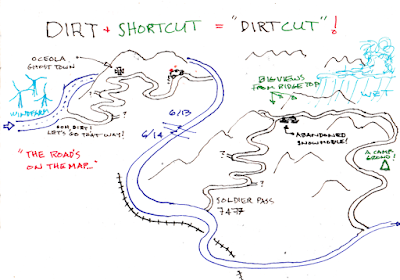 DIRT + SHORTCUT = "DIRTCUT"!
OCEOLA
GHOST TOWN
WINDFARM
OOH, DIRT!
LET'S GO THAT WAY!
"THE ROAD'S
ON THE MAP..."
6/13
6/14
BIG VIEWS
FROM RIDGE TOP
WET
?
?
?
?
ABANDONED
SNOWMOBILE!
A CAMP
GROUND!
SOLDIER PASS
7477